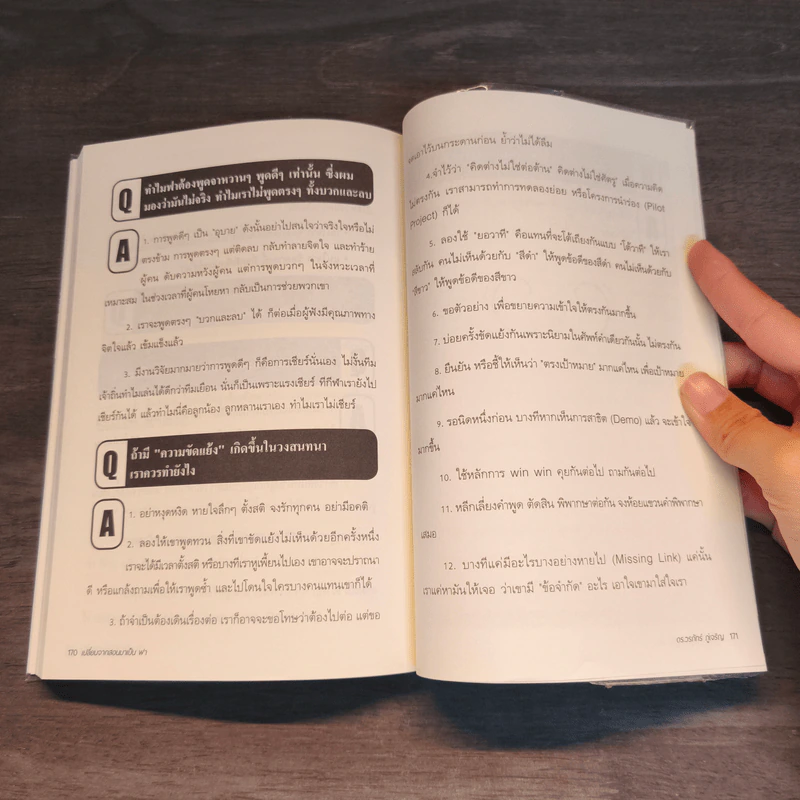 Q
ทำไมฟาต้องพูดจาหวานๆ พูดดีๆ เท่านั้น ซึ่งผม
มองว่ามันไม่จริง ทำไมเราไม่พูดตรงๆ ทั้งบวกและลบ
A
1. การพูดดีๆ เป็น "อุบาย" ดังนั้นอย่าไปสนใจว่าจริงใจหรือไม่
ตรงข้าม การพูดตรงๆ แต่ติดลบ กลับทำลายจิตใจ และทำร้าย
ผู้คน ดับความหวังผู้คน แต่การพูดบวกๆ ในจังหวะเวลาที่
เหมาะสม ในช่วงเวลาที่ผู้คนโหยหา กลับเป็นการช่วยพวกเขา
2. เราจะพูดตรงๆ "บวกและลบ" ได้ ก็ต่อเมื่อผู้ฟังมีคุณภาพทาง
จิตใจแล้ว เข้มแข็งแล้ว
3. มีงานวิจัยมากมายว่าการพูดดีๆ ก็คือการเชียร์นั่นเอง ไม่งั้นทีม
เจ้าถิ่นทำไมเล่นได้ดีกว่าทีมเยือน นั่นก็เป็นเพราะแรงเชียร์ ทีกีฬาเรายังไป
เชียร์กันได้ แล้วทำไมนี่คือลูกน้อง ลูกหลานเราเอง ทำไมเราไม่เชียร์
Q
ถ้ามี "ความขัดแย้ง" เกิดขึ้นในวงสนทนา
เราควรทำยังไง
A
1. อย่าหงุดหงิด หายใจลึกๆ ตั้งสติ จงรักทุกคน อย่ามีอคติ
2. ลองให้เขาพูดทวน สิ่งที่เขาขัดแย้งไม่เห็นด้วยอีกครั้งหนึ่ง
เราจะได้มีเวลาตั้งสติ หรือบางทีเราหูเพี้ยนไปเอง เขาอาจจะปรารถนา
ดี หรือแกล้งถามเพื่อให้เราพูดซ้ำ และไปโดนใจใครบางคนแทนเขาก็ได้
3. ถ้าจำเป็นต้องเดินเรื่องต่อ เราก็อาจจะขอโทษว่าต้องไปต่อ แต่ขอ
170 เปลี่ยนจากสอนมาเป็น ฟา
จดเอาไว้บนกระดานก่อน ย้ำว่าไม่ได้ลืม
4.จำไว้ว่า "คิดต่างไม่ใช่ต่อต้าน" คิดต่างไม่ใช่ศัตรู" เมื่อความคิด
ไม่ตรงกัน เราสามารถทำการทดลองย่อย หรือโครงการนำร่อง (Pilot
Project) ก็ได้
5. ลองใช้ "ยอวาที" คือแทนที่จะได้เถียงกันแบบ "โต้วาที" ให้เรา
สลับกัน คนไม่เห็นด้วยกับ "สีดำ" ให้พูดข้อดีของสีดำ คนไม่เห็นด้วยกับ
"สีขาว" ให้พูดข้อดีของสีขาว
6. ขอตัวอย่าง เพื่อขยายความเข้าใจให้ตรงกันมากขึ้น
7. บ่อยครั้งขัดแย้งกันเพราะนิยามในศัพท์คำเดียวกันนั้น ไม่ตรงกัน
8. ยืนยัน หรือชี้ให้เห็นว่า "ตรงเป้าหมาย" มากแค่ไหน เพื่อเป้าหมาย
มากแค่ไหน
9. รอนิดหนึ่งก่อน บางทีหากเห็นการสาธิต (Demo) แล้ว จะเข้าใจ
มากขึ้น
10. ใช้หลักการ win win คุยกันต่อไป ถามกันต่อไป
11. หลีกเลี่ยงคำพูด ตัดสิน พิพากษาต่อกัน จงห้อยแขวนคำพิพากษา
เสมอ
12. บางทีแค่มีอะไรบางอย่างหายไป (Missing Link) แค่นั้น
เราแค่หามันให้เจอ ว่าเขามี "ข้อจำกัด" อะไร เอาใจเขามาใส่ใจเรา
ดร.วรภัทร์ ภู่เจริญ 171